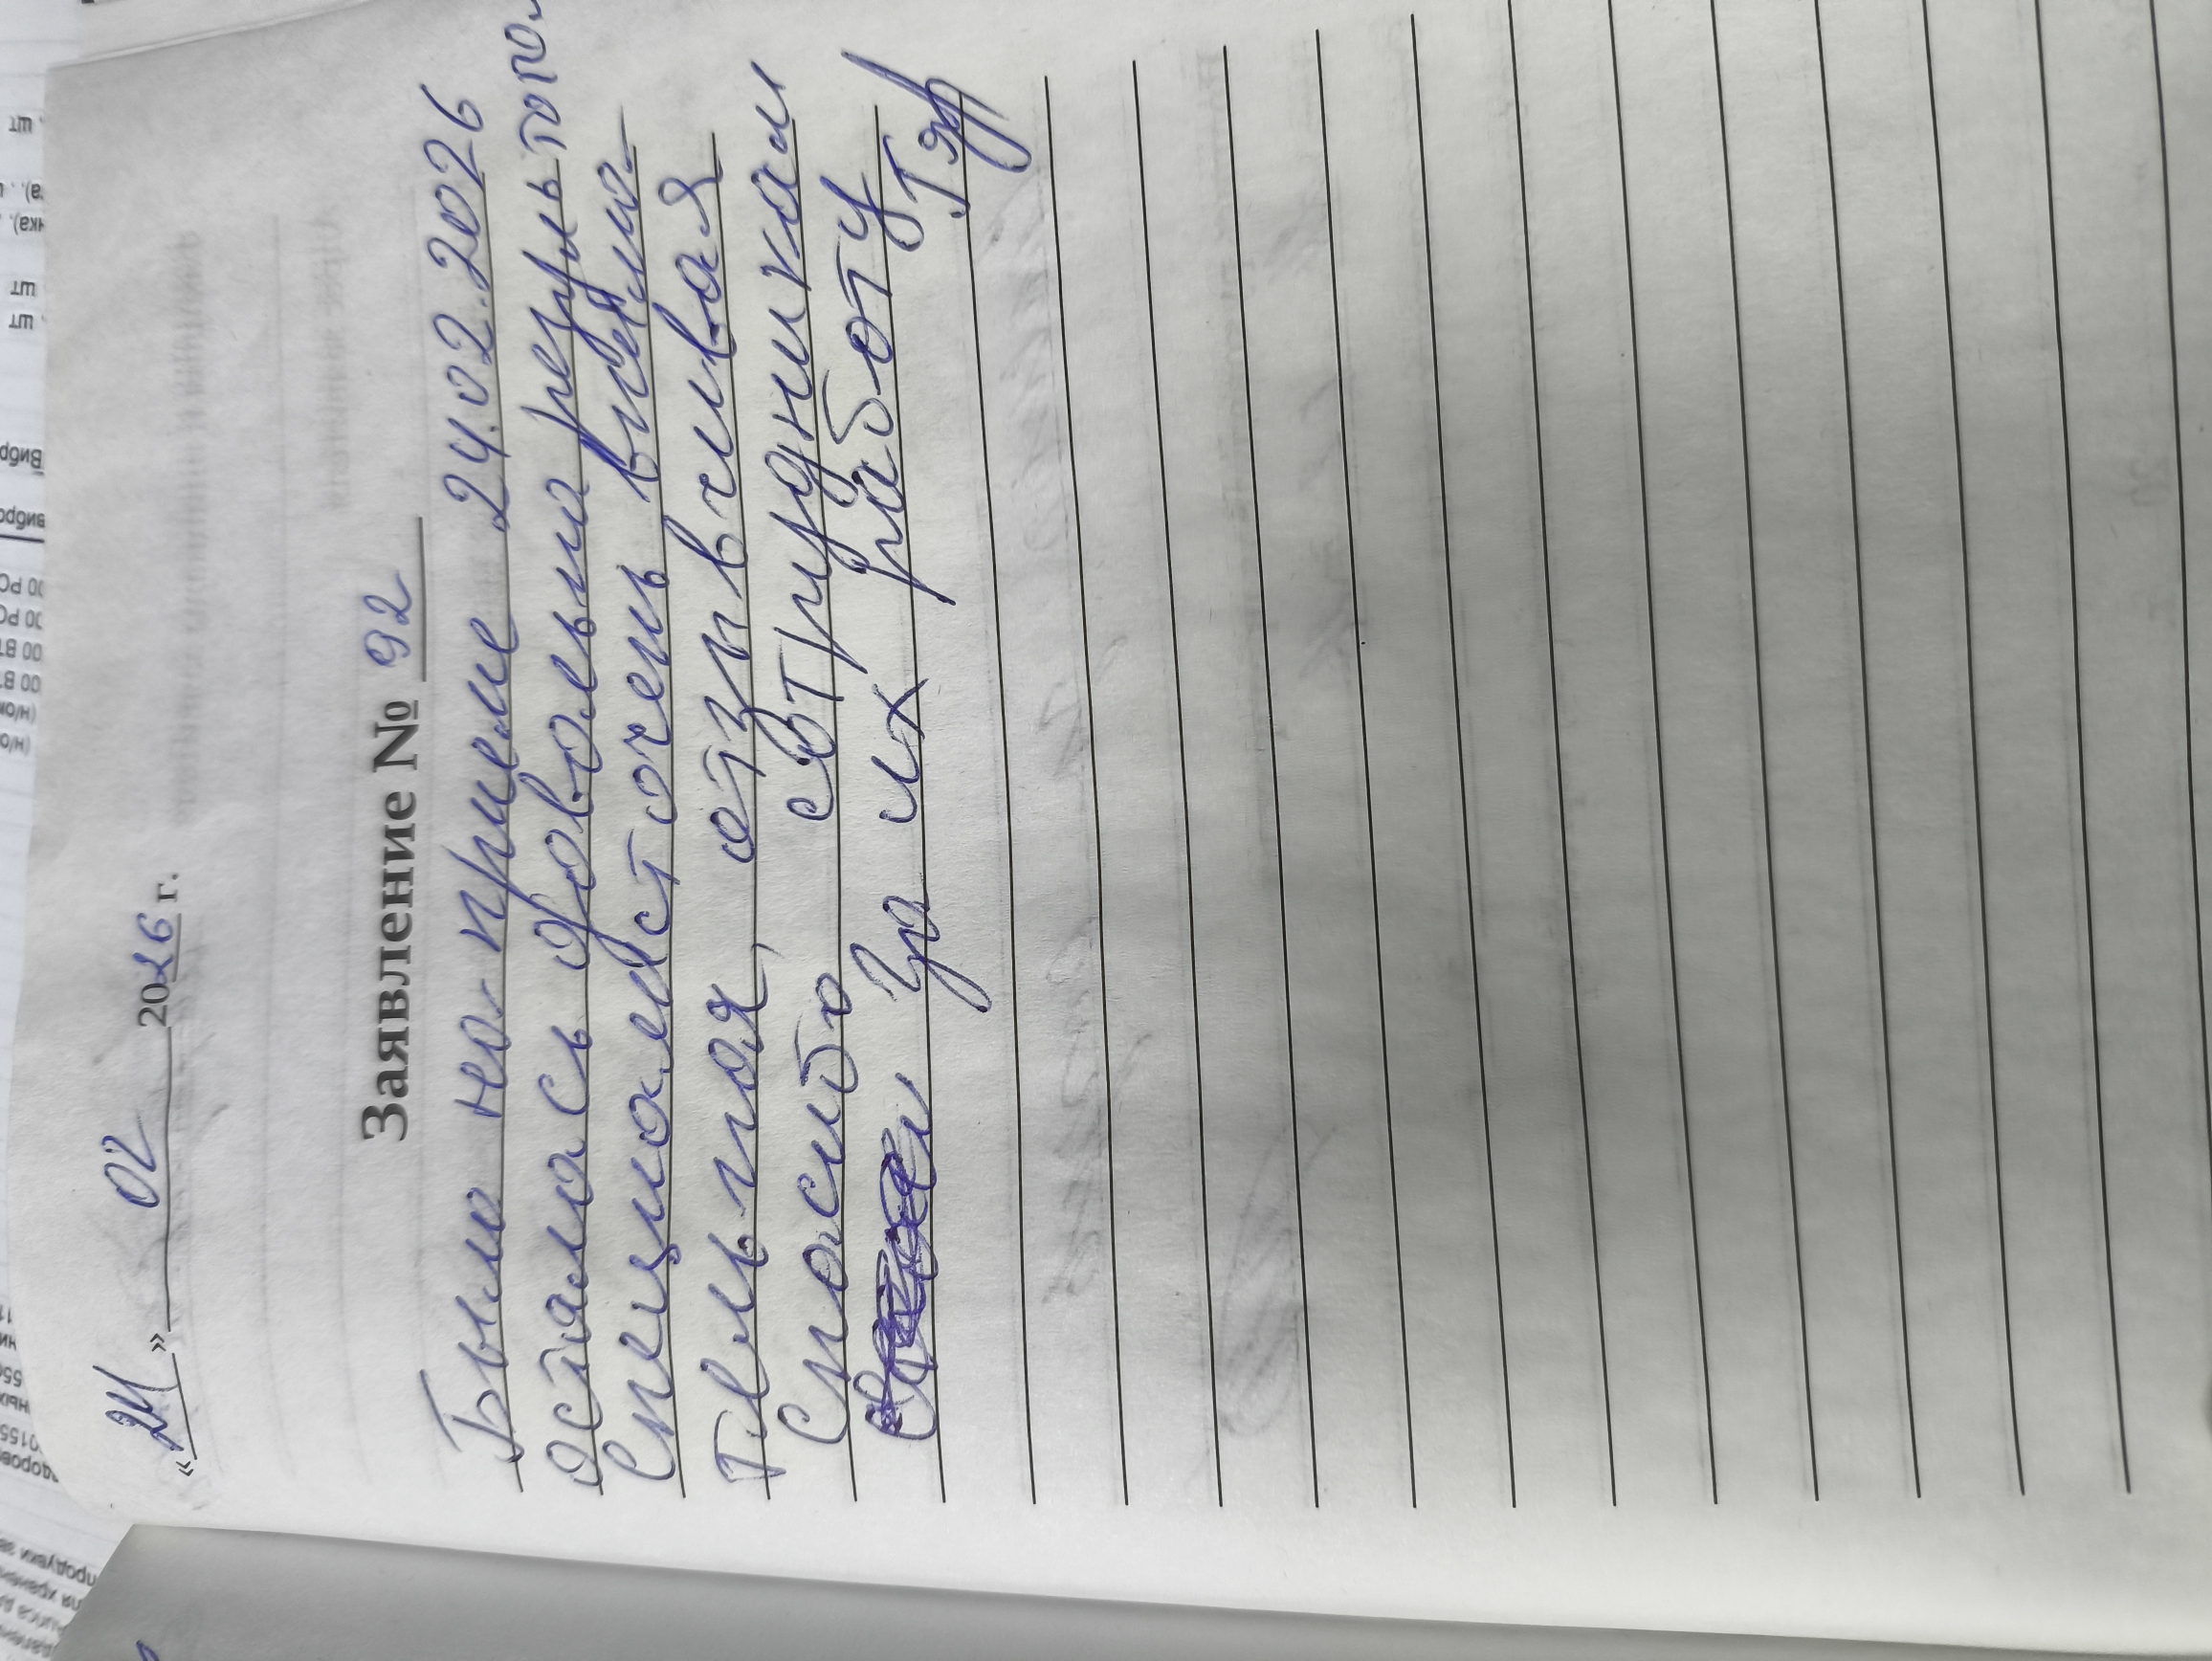 «24» 02 2026 г.
Заявление № 92
Была на приеме 24.02.2026
осталась довольна результато.
Специалист очень внима-
тельная, отзывчивая
Спасибо сотрудникам
за их работу